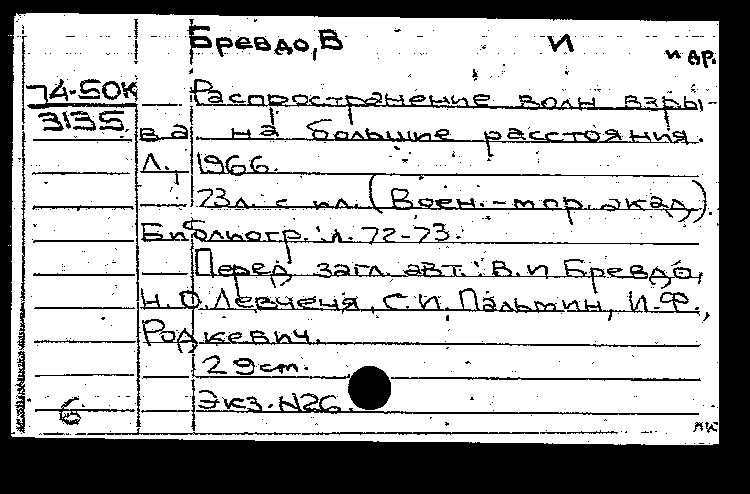 Бревдо, В И и др.
74-50К Распространение волн взры-
3135 ва на большие расстояния.
Л., 1966.
73л. с ил. (Воен.-мор. акад.).
Библиогр.: л. 72-73.
Перед загл. авт.: В.И Бревдо,
Н.О. Левченя, С.И. Пальмин, И.Ф.,
Родкевич.
29 см.
Экз. N26.
6